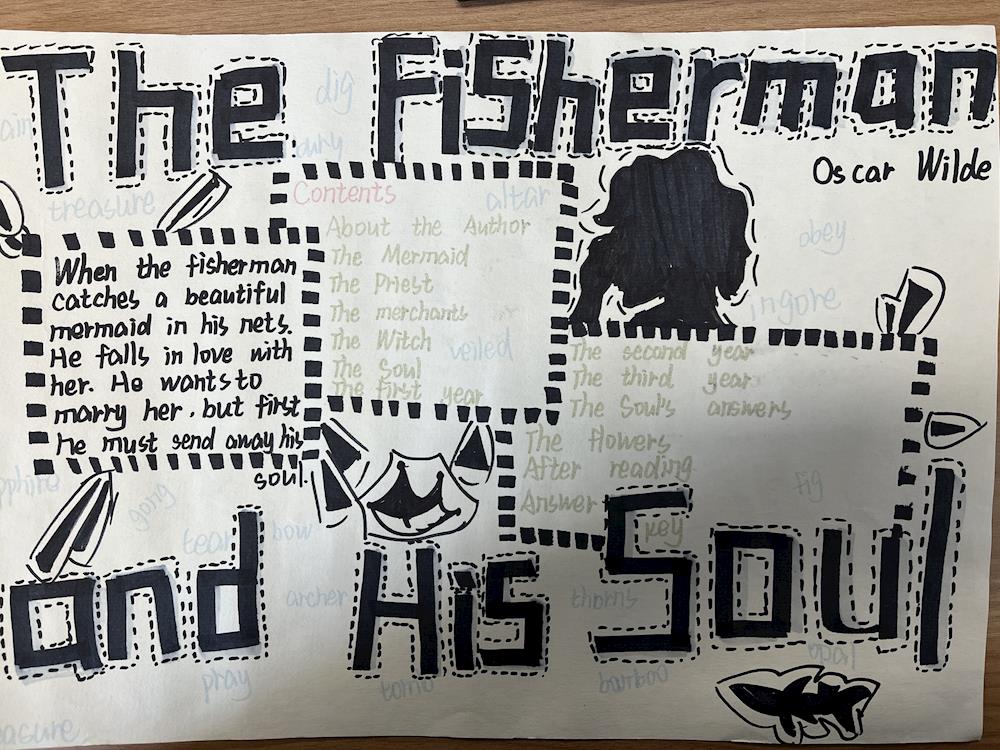 The Fisherman
Oscar Wilde
dig
treasure
altar
obey
ingore
veiled
Contents
About the Author
The Mermaid
The Priest
The merchants
The Witch
The Soul
The first year
The second year
The third year
The Soul's answers
The flowers
After reading
Answer key
When the fisherman
catches a beautiful
mermaid in his nets.
He falls in love with
her. He wants to
marry her, but first
he must send away his
soul.
gong
tear
bow
fig
and His Soul
archer
thorns
pray
tomb
bamboo
opal